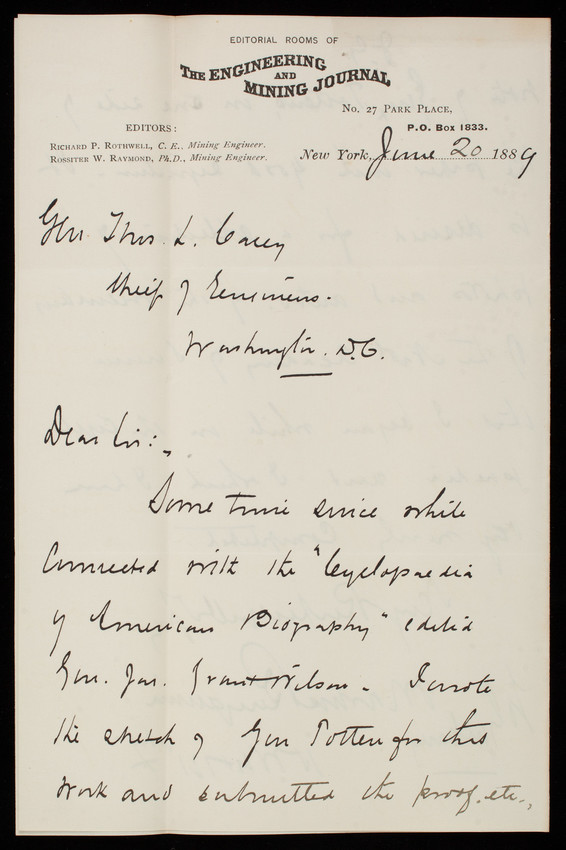 EDITORIAL ROOMS OF
THE ENGINEERING
AND
MINING JOURNAL
No. 27 PARK PLACE,
P.O. Box 1833.
EDITORS:
RICHARD P. ROTHWELL, C. E., Mining Engineer.
ROSSITER W. RAYMOND, Ph.D., Mining Engineer.
New York, June 20 1889
Gen Thos. L. Casey
Chief of Engineers.
Washington. D.C.
Dear Sir:
Some time since while
Connected with the "Cyclopaedia
of American Biography" edited
Gen. Jas. Grant Wilson. I wrote
the sketch of Gen Totten for this
work and submitted the proof. etc.,